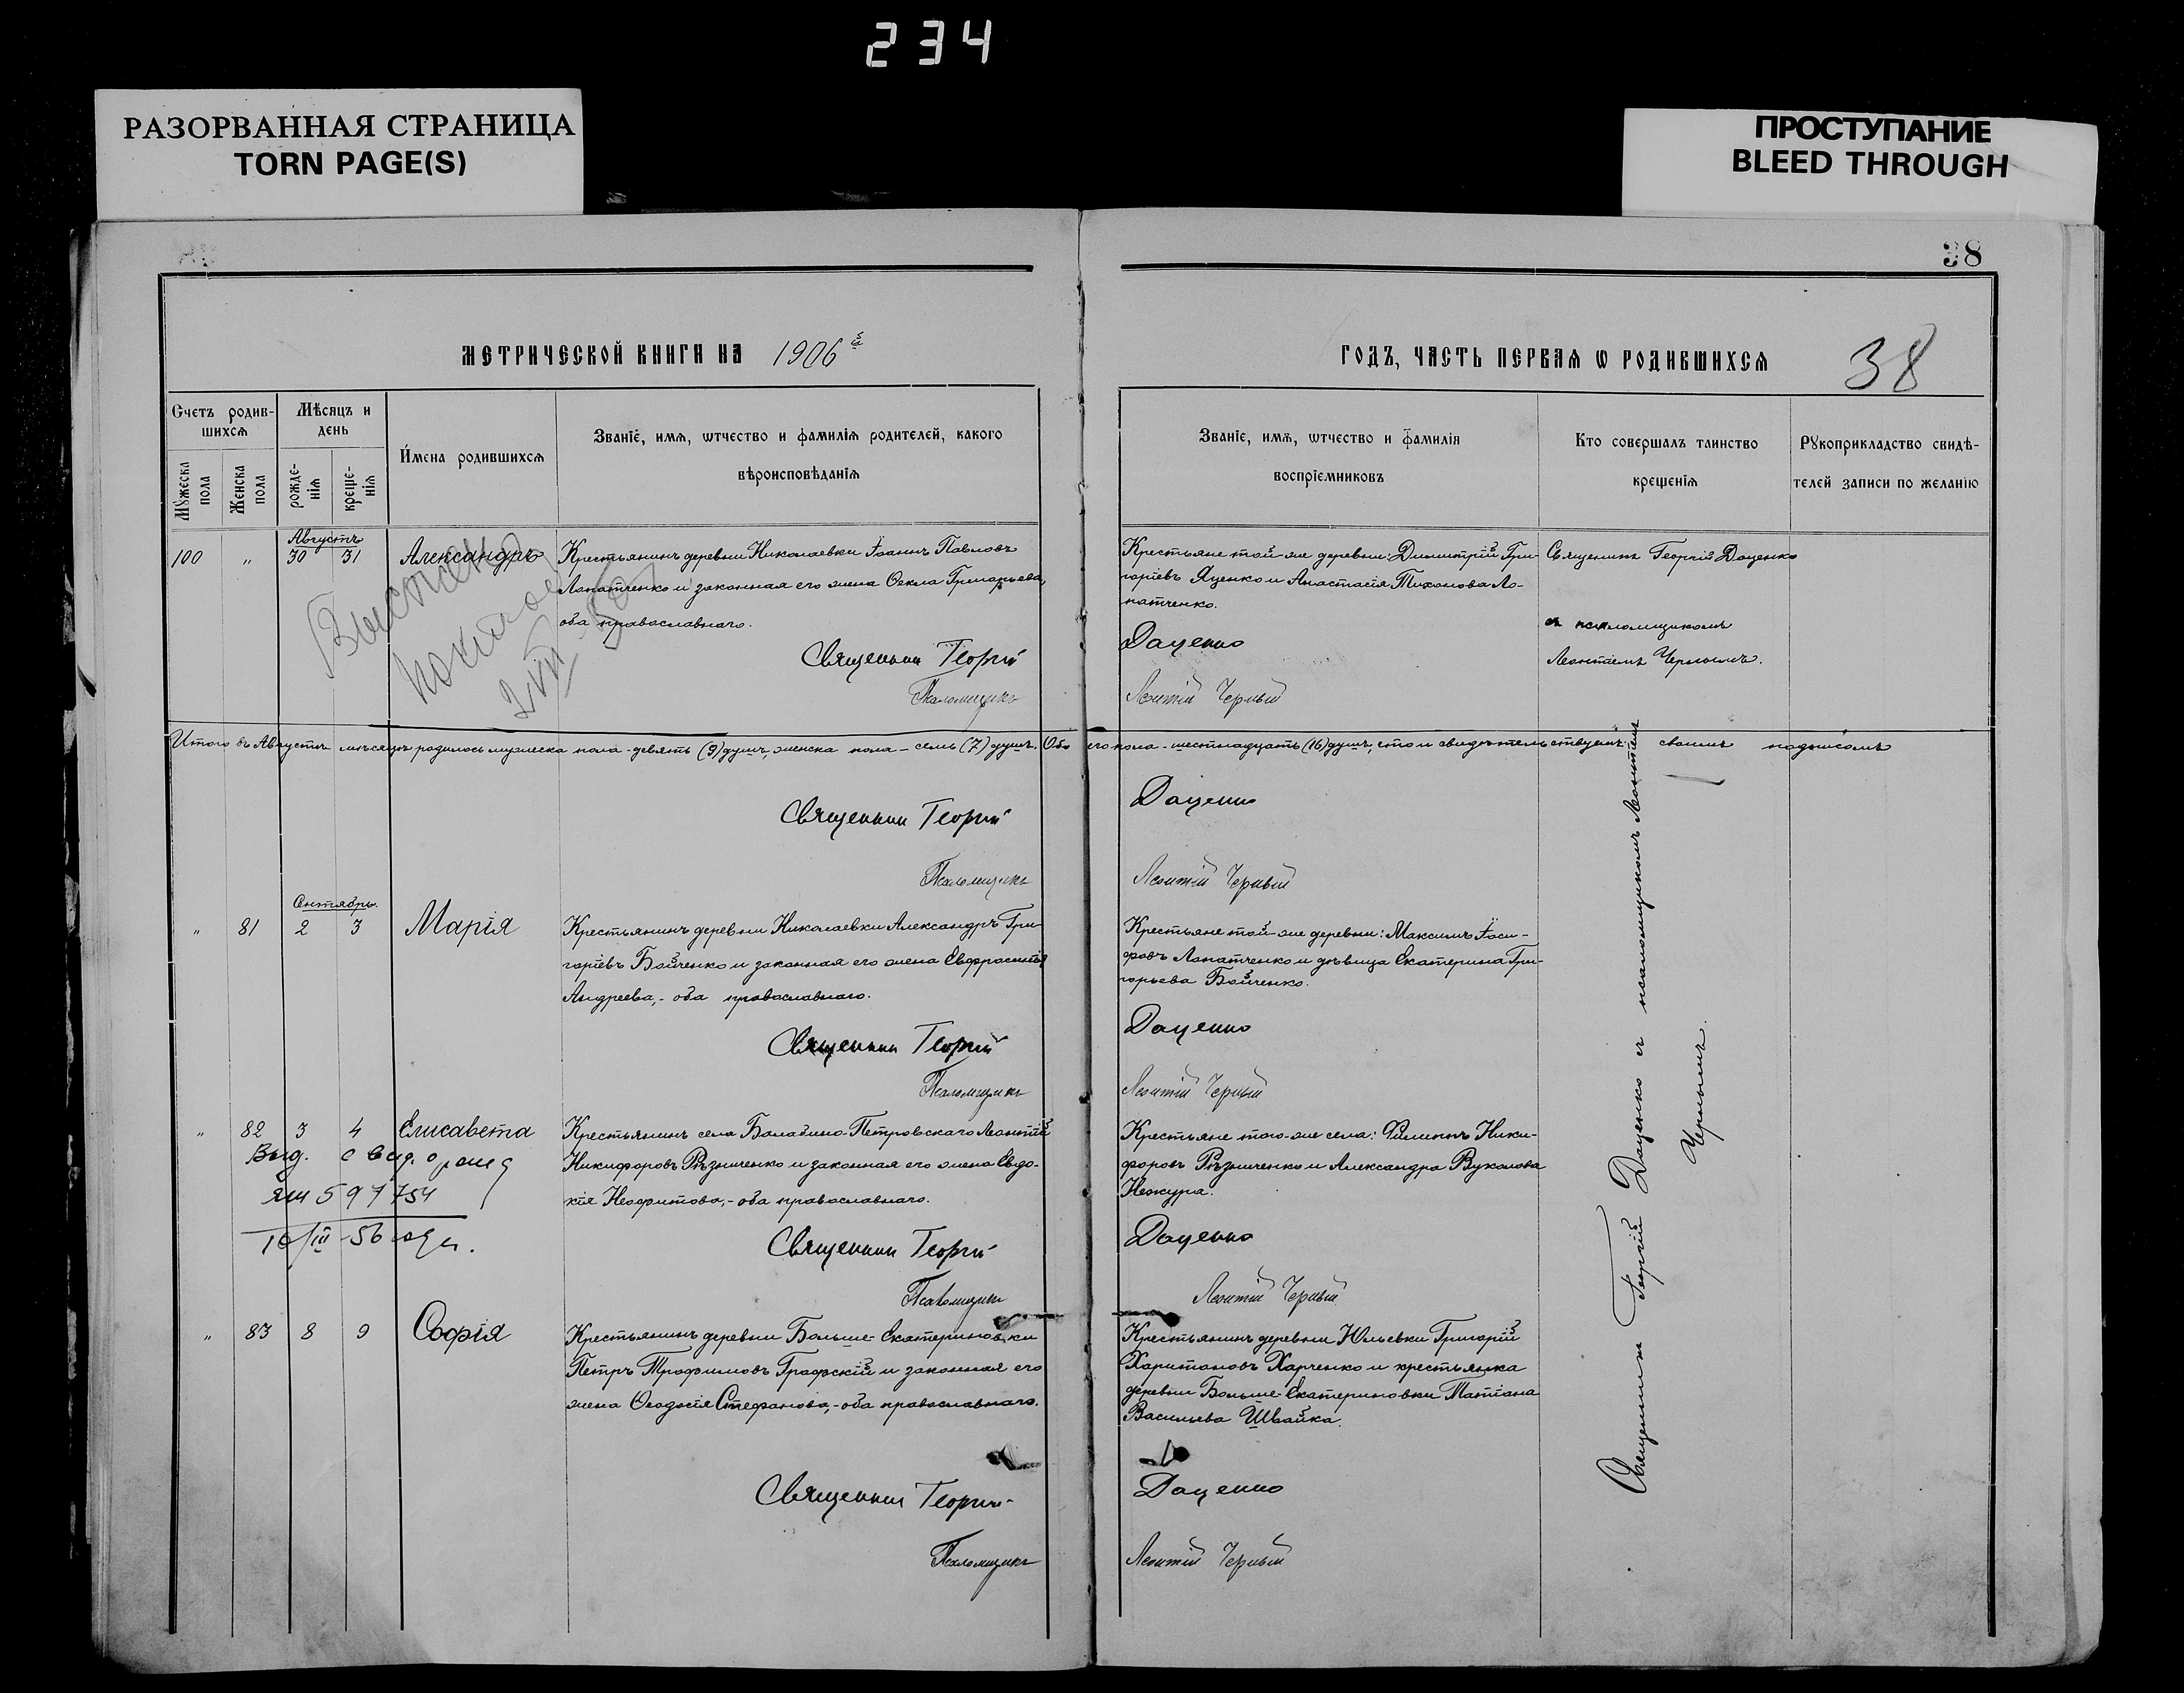 234
РАЗОРВАННАЯ СТРАНИЦА
TORN PAGE(S)
ПРОСТУПАНИЕ
BLEED THROUGH
38
МЕТРИЧЕСКОЙ КНИГИ НА 1906й
ГОДЪ, ЧАСТЬ ПЕРВАЯ Ѡ РОДИВШИХСЯ
38
Счетъ родив-
шихся
Мѣсяцъ и
день
Мужеска
пола
Женска
пола
рожде-
нія
креще-
нія
Имена родившихся
Званіе, имя, ѡтчество и фамилія родителей, какого
вѣроисповѣданія
Званіе, имя, ѡтчество и фамилія
воспріемниковъ
Кто совершалъ таинство
крещенія
Рукоприкладство свидѣ-
телей записи по желанію
Августъ
100 " 30 31 Александръ
Крестьянинъ деревни Николаевки Іоаннъ Павловъ
Лопатченко и законная его жена Ѳекла Григорьева,
оба православнаго.
Священник Георгій
Псаломщикъ
Крестьяне той-же деревни: Димитрій Гри-
горіевъ Яценко и Анастасія Тихонова Ло-
патченко.
Даценко
Леонтій Черный
Священникъ Георгій Даценко
съ псаломщикомъ
Леонтіемъ Чернымъ.
Итого въ Августѣ мѣсяцѣ родилось мужеска пола - девять (9) душъ, женска пола - семь (7) душъ. Обоего пола - шестнадцать (16) душъ, что и свидѣтельствуемъ своимъ подписомъ
Священник Георгій
Даценко
Псаломщикъ
Леонтій Черный
Сентябрь.
" 81 2 3 Марія
Крестьянинъ деревни Николаевки Александръ Гри-
горіевъ Бойченко и законная его жена Евфросинія
Андреева, - оба православнаго.
Священник Георгій
Псаломщикъ
Крестьяне той-же деревни: Максимъ Іоси-
фовъ Лопатченко и дѣвица Екатерина Гри-
горьева Бойченко.
Даценко
Леонтій Черный
" 82 3 4 Елисавета
Выд. о
597754
10/III-56
Крестьянинъ села Балабино-Петровскаго Леонтій
Никифоровъ Рѣзниченко и законная его жена Евдо-
кія Неофитова, - оба православнаго.
Священник Георгій
Псаломщикъ
Крестьяне того-же села: Филиппъ Ники-
форовъ Рѣзниченко и Александра Вуколова
Нежура.
Даценко
Леонтій Черный
" 83 8 9 Софія
Крестьянинъ деревни Больше-Екатериновки
Петръ Трофимовъ Графскій и законная его
жена Ѳеодосія Стефанова, - оба православнаго.
Священник Георгій
Псаломщикъ
Крестьянинъ деревни Юльевки Григорій
Харитоновъ Харченко и крестьянка
деревни Больше-Екатериновки Татіана
Васильева Швайка.
Даценко
Леонтій Черный
Священникъ Георгій Даценко съ псаломщикомъ Леонтіемъ
Чернымъ.